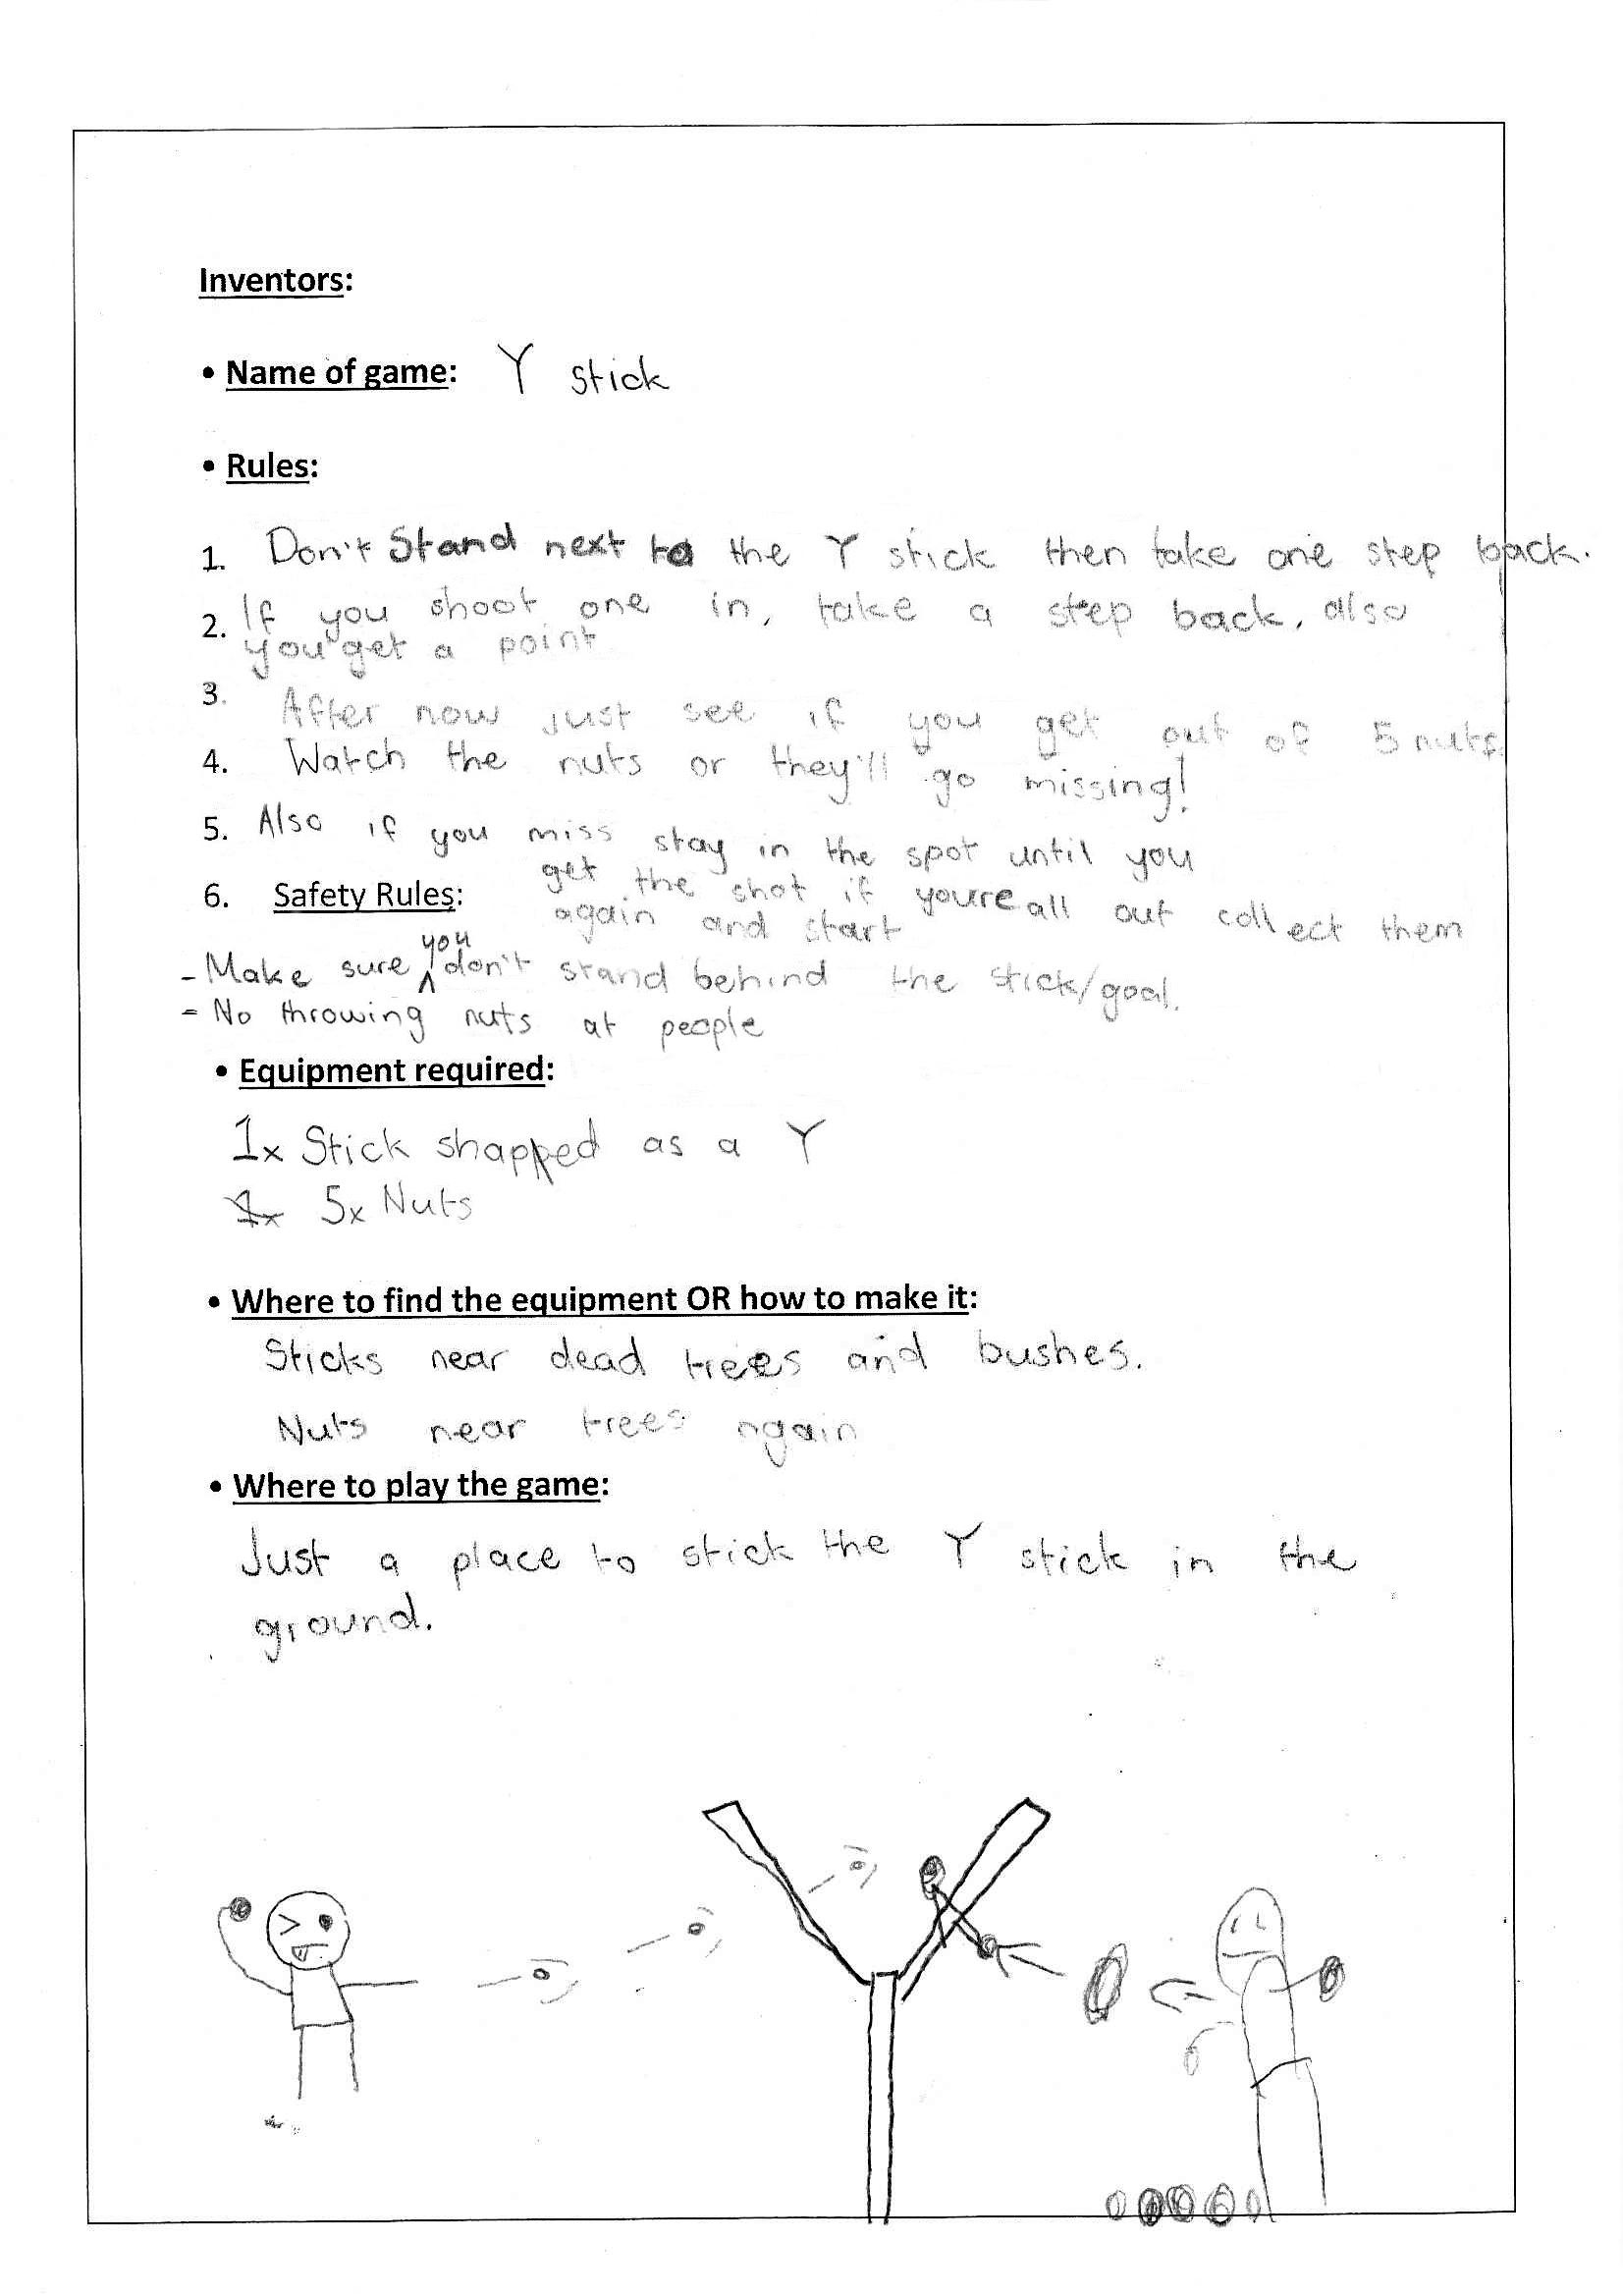 Inventors:
• Name of game: Y stick
• Rules:
1. Don't Stand next to the Y stick then take one step back.
2. If you shoot one in, take a step back, also
you get a point
3. After now just see if you get out of 5 nuts.
4. Watch the nuts or they'll go missing!
5. Also if you miss stay in the spot until you
get the shot if youre all out collect them
again and start
6. Safety Rules:
- Make sure you don't stand behind the stick/goal.
- No throwing nuts at people
• Equipment required:
1x Stick shapped as a Y
1x 5x Nuts
• Where to find the equipment OR how to make it:
Sticks near dead trees and bushes.
Nuts near trees again
• Where to play the game:
Just a place to stick the Y stick in the
ground.